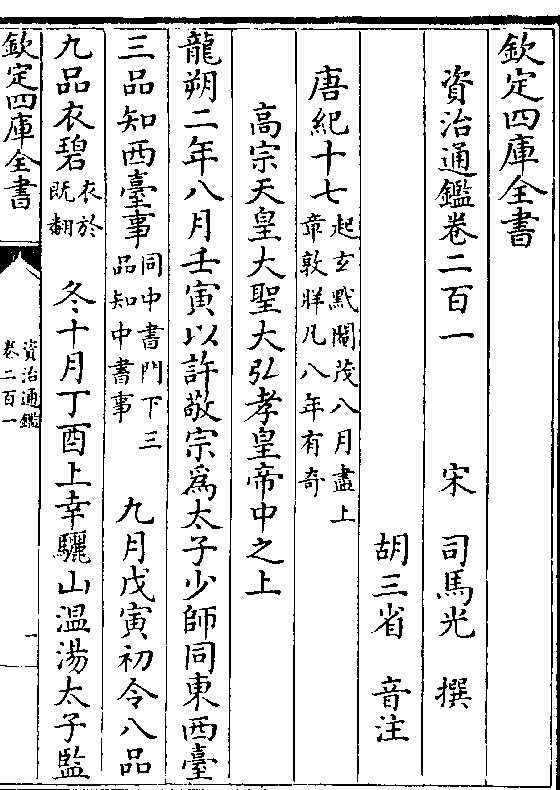 欽定四庫全書
資治通鑑卷二百一　宋　司馬光　撰
胡三省　音注
唐紀十七 起玄黓閹茂八月盡上
章敦牂凡八年有奇
高宗天皇大聖大弘孝皇帝中之上
龍朔二年八月壬寅以許敬宗爲太子少師同東西臺
三品知西臺事 同中書門下三
品知中書事
九月戊寅初令八品
九品衣碧 衣於
既翻
冬十月丁酉上幸驪山温湯太子監
欽定四庫全書
資治通鑑
卷二百一
一